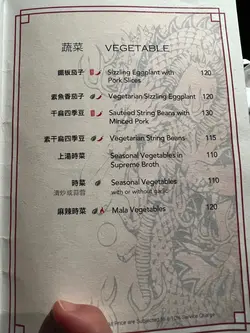 蔬菜 VEGETABLE
鐵板茄子 Sizzling Eggplant with 120
Pork Slices
素魚香茄子 Vegetarian Sizzling Eggplant 120
干扁四季豆 Sauteed String Beans with 130
Minced Pork
素干扁四季豆 Vegetarian String Beans 115
上湯時菜 Seasonal Vegetables in 110
Supreme Broth
時菜 Seasonal Vegetables 110
清炒或蒜蓉 with or without garlic
麻辣時菜 Mala Vegetables 120
Price are Subjected to a 10% Service Charge